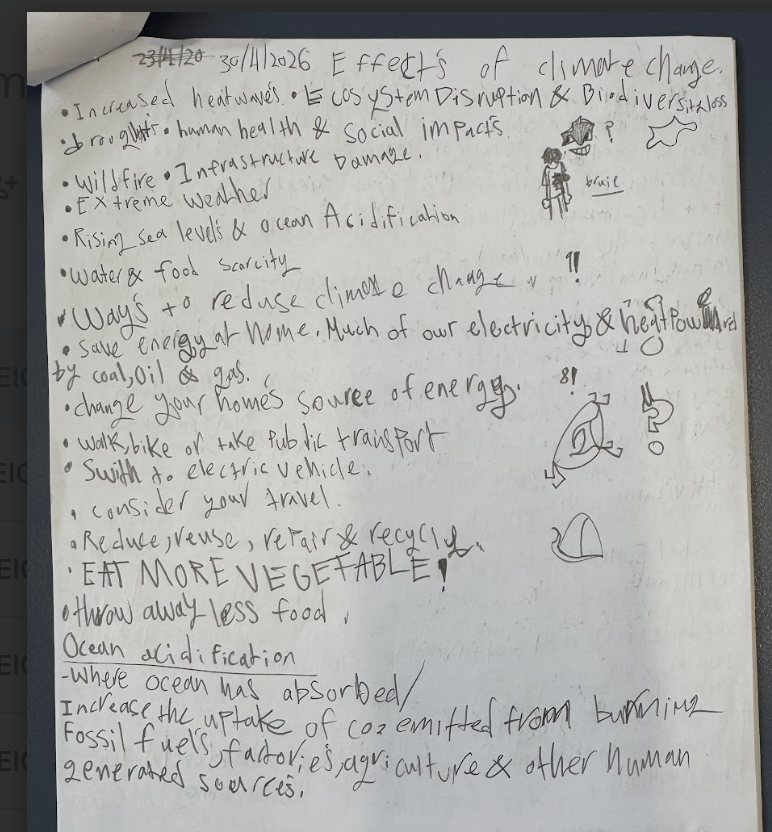 23/4/20 30/4/2026 Effects of climate change.
• Increased heatwaves • Ecosystem Disruption & Biodiversity loss
• droughts • human health & social impacts
• Wildfire • Infrastructure Damage.
• Extreme weather
• Rising sea levels & ocean Acidification
• Water & food scarcity
• Ways to reduse climate change !!
• Save energy at home. Much of our electricity & heat Powered
by coal, oil & gas.
• change your homes source of energy.
• walk, bike or take Public transport
• Swith to electric vehicle.
• consider your travel.
• Reduce, reuse, repair & recycly.
• EAT MORE VEGETABLE!
• throw away less food.
Ocean acidification
- Where ocean has absorbed/
Increase the uptake of co2 emitted from burning
Fossil fuels, factories, agriculture & other human
generated sources.